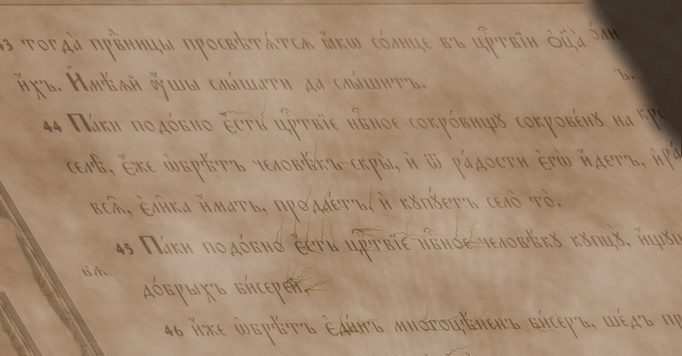 43 тогда̀ прв҃ницы просвѣтѧ́тсѧ ꙗ҆́кѡ со́лнце въ црⷭ҇твїи ѻ҆ц҃а̀
и҆́хъ. И҆мѣ́ѧй ᲂу҆́шы слы́шати да слы́шитъ.
44 Па́ки подо́бно є҆́сть црⷭ҇твїе нбⷭ҇ное сокро́вищꙋ сокрове́нꙋ на
селѣ̀, є҆́же ѡ҆брѣ́тъ человѣ́къ скры̀, и҆ ѿ ра́дости є҆гѡ̀ и҆́детъ, и҆
всѧ̑, є҆ли̑ка и҆́мать, продае́тъ, и҆ кꙋпꙋ́етъ село̀ то̀.
45 Па́ки подо́бно є҆́сть црⷭ҇твїе нбⷭ҇ное человѣ́кꙋ кꙋпцꙋ̀,
до́брыхъ би́серей,
46 и҆́же ѡ҆брѣ́тъ є҆ди́нъ многоцѣ́ненъ би́серъ, ше́дъ